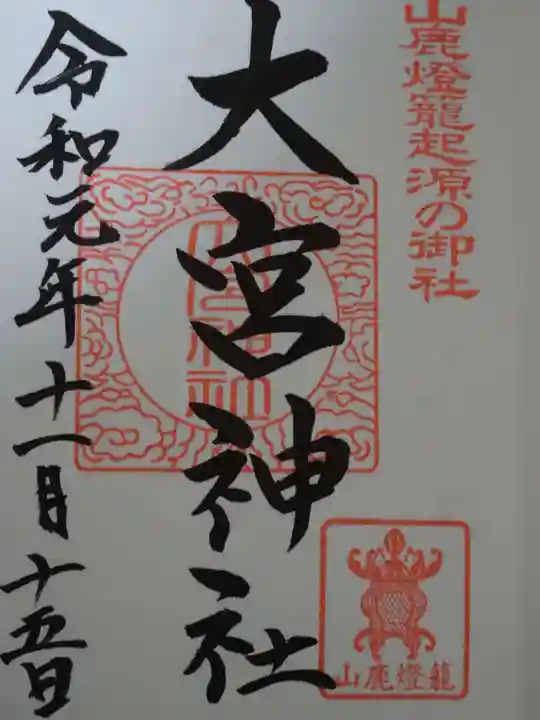 山鹿燈籠起源の御社
大宮神社
大宮神社
山鹿燈籠
令和元年十一月十五日